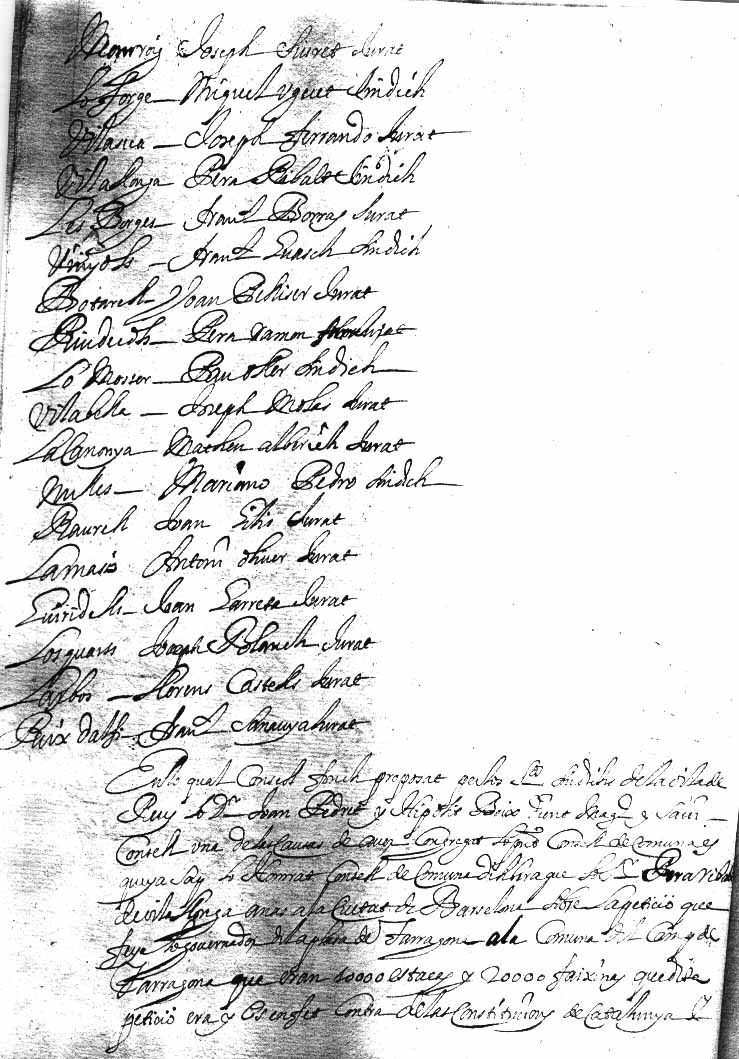 Monroig Joseph Sunet Jurat
Lo Forge Miquel Uguet Sindich
Vilaseca Joseph Ferrando Jurat
Vilallonga Pera Ribalt Sindich
Les Borges Fran.t Borras Jurat
Vinyols Fran.t Guasch Sindich
Botarell Joan Jurat
Riudecols Pera Ramon Jurat
Lo Mosser Pau oller Sindich
Vilabella Joseph Molas Jurat
La Canonya Matheu alberich Jurat
Nulles Mariano Pedro Sindich
Raurell Joan Jurat
Lamasó Antoni oliver Jurat
Joan Larreta Jurat
Los quarts Joseph Blanch Jurat
Larbos Llorens Castells Jurat
Puix dalfi Fran.t Sanauya Jurat
En lo qual Consell fonch proposat per los S.rs Sindichs de la vila de
Reus lo D.r Joan Pedret y Hipolit Boix
Consell una de las Causas de aver Congregat lo p.nt Consell de Comuna es
que ya sap lo Honrat Consell de Comuna que lo S.r Pera Ribalt
de vilallonga anas a la Ciutat de Barselona sobre la petició que
feya lo governador de la plasa de Tarragona a la Comuna del Camp de
Tarragona que eran 10000 estacas y 20000 faixinas que dita
petició era y es Contra de las Constitucions de Catalunya